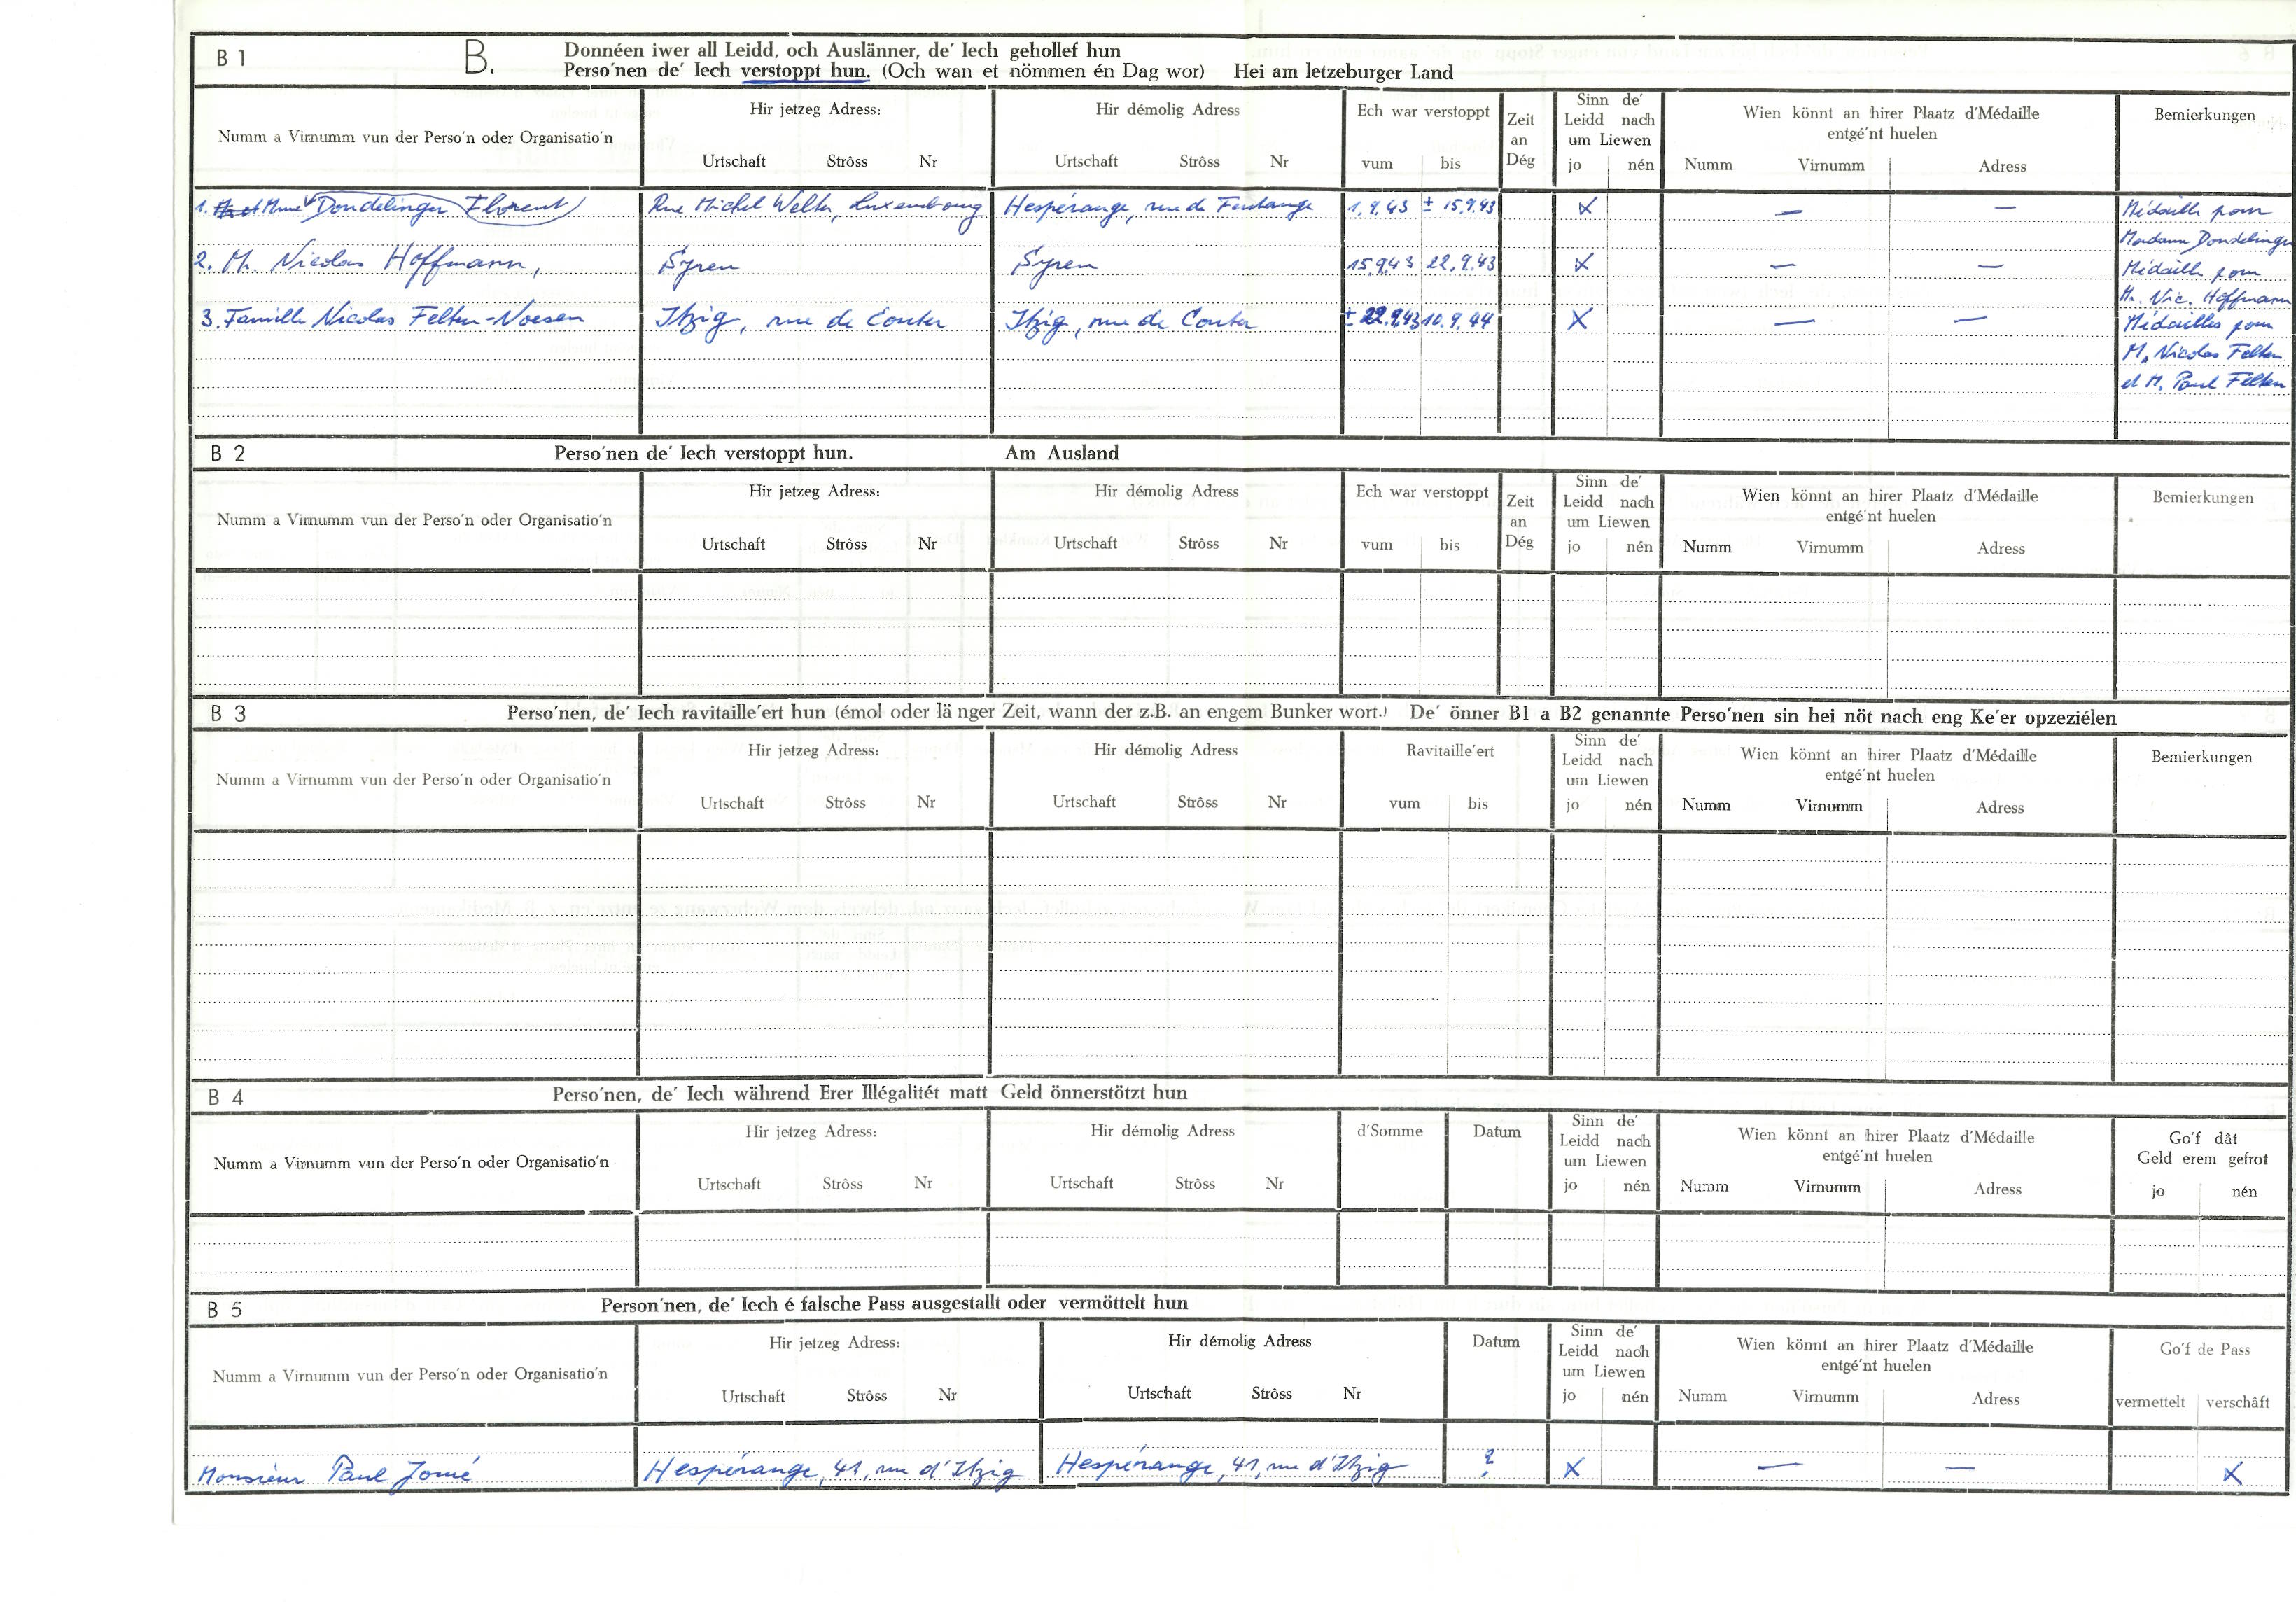 B 1 B. Donnéen iwer all Leidd, och Auslänner, de' Iech gehollef hun
Perso'nen de' Iech verstoppt hun. (Och wan et nömmen én Dag wor) Hei am letzeburger Land
Numm a Virnumm vun der Perso'n oder Organisatio'n
Hir jetzeg Adress:
Urtschaft Strôss Nr
Hir démolig Adress
Urtschaft Strôss Nr
Ech war verstoppt
vum bis
Zeit
an
Dég
Sinn de'
Leidd nach
um Liewen
jo nén
Wien könnt an hirer Plaatz d'Médaille
entgé'nt huelen
Numm Virnumm Adress
Bemierkungen
1. M. et Mme Dondelinger Florent Rue Michel Welter, Luxembourg Hespérange, rue de Fentange 1.9.43 ± 15.9.43 x — — Médaille pour
Madame Dondelinger
2. M. Nicolas Hoffmann, Syren Syren 15.9.43 22.9.43 x — — Médaille pour
M. Nic. Hoffmann
3. Famille Nicolas Felten-Noesen Itzig, rue de Contern Itzig, rue de Contern ± 22.9.43 10.9.44 X — — Médailles pour
M. Nicolas Felten
et M. Paul Felten
B 2 Perso'nen de' Iech verstoppt hun. Am Ausland
Numm a Virnumm vun der Perso'n oder Organisatio'n
Hir jetzeg Adress:
Urtschaft Strôss Nr
Hir démolig Adress
Urtschaft Strôss Nr
Ech war verstoppt
vum bis
Zeit
an
Dég
Sinn de'
Leidd nach
um Liewen
jo nén
Wien könnt an hirer Plaatz d'Médaille
entgé'nt huelen
Numm Virnumm Adress
Bemierkungen
B 3 Perso'nen, de' Iech ravitaille'ert hun (émol oder länger Zeit, wann der z.B. an engem Bunker wort.) De' önner B1 a B2 genannte Perso'nen sin hei nöt nach eng Ke'er opzeziélen
Numm a Virnumm vun der Perso'n oder Organisatio'n
Hir jetzeg Adress:
Urtschaft Strôss Nr
Hir démolig Adress
Urtschaft Strôss Nr
Ravitaille'ert
vum bis
Sinn de'
Leidd nach
um Liewen
jo nén
Wien könnt an hirer Plaatz d'Médaille
entgé'nt huelen
Numm Virnumm Adress
Bemierkungen
B 4 Perso'nen, de' Iech während Erer Illégalitét matt Geld önnerstötzt hun
Numm a Virnumm vun der Perso'n oder Organisatio'n
Hir jetzeg Adress:
Urtschaft Strôss Nr
Hir démolig Adress
Urtschaft Strôss Nr
d'Somme
Datum
Sinn de'
Leidd nach
um Liewen
jo nén
Wien könnt an hirer Plaatz d'Médaille
entgé'nt huelen
Numm Virnumm Adress
Go'f dât
Geld erem gefrot
jo nén
B 5 Person'nen, de' Iech é falsche Pass ausgestallt oder vermöttelt hun
Numm a Virnumm vun der Perso'n oder Organisatio'n
Hir jetzeg Adress:
Urtschaft Strôss Nr
Hir démolig Adress
Urtschaft Strôss Nr
Datum
Sinn de'
Leidd nach
um Liewen
jo nén
Wien könnt an hirer Plaatz d'Médaille
entgé'nt huelen
Numm Virnumm Adress
Go'f de Pass
vermettelt verschâft
Monsieur Paul Jomé Hespérange, 41, rue d'Itzig Hespérange, 41, rue d'Itzig ? X — — X